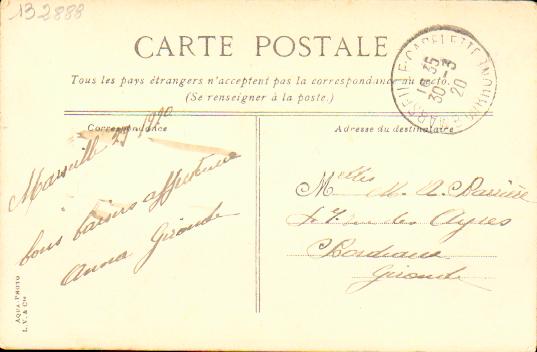 132888
CARTE POSTALE
Tous les pays étrangers n'acceptent pas la correspondance au recto.
(Se renseigner à la poste.)
Correspondance
Marseille 29 1920
bons baisers affectueux
Anna Gironde
Adresse du destinataire
Melles M. A.
rue des Ayres
Bordeaux
Gironde
MARSEILLE-CAPELETTE
16 35
30 - 3
20
AQUA-PHOTO
L. V. & Cie